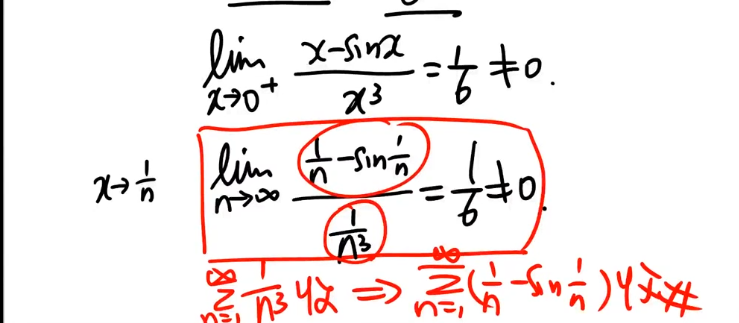 lim x→0⁺ (x-sinx)/x³ = 1/6 ≠ 0.
x→1/n lim n→∞ (1/n - sin 1/n)/(1/n³) = 1/6 ≠ 0.
∞Σn=1 1/n³ 收 ⇒ ∞Σn=1 (1/n - sin 1/n) 收